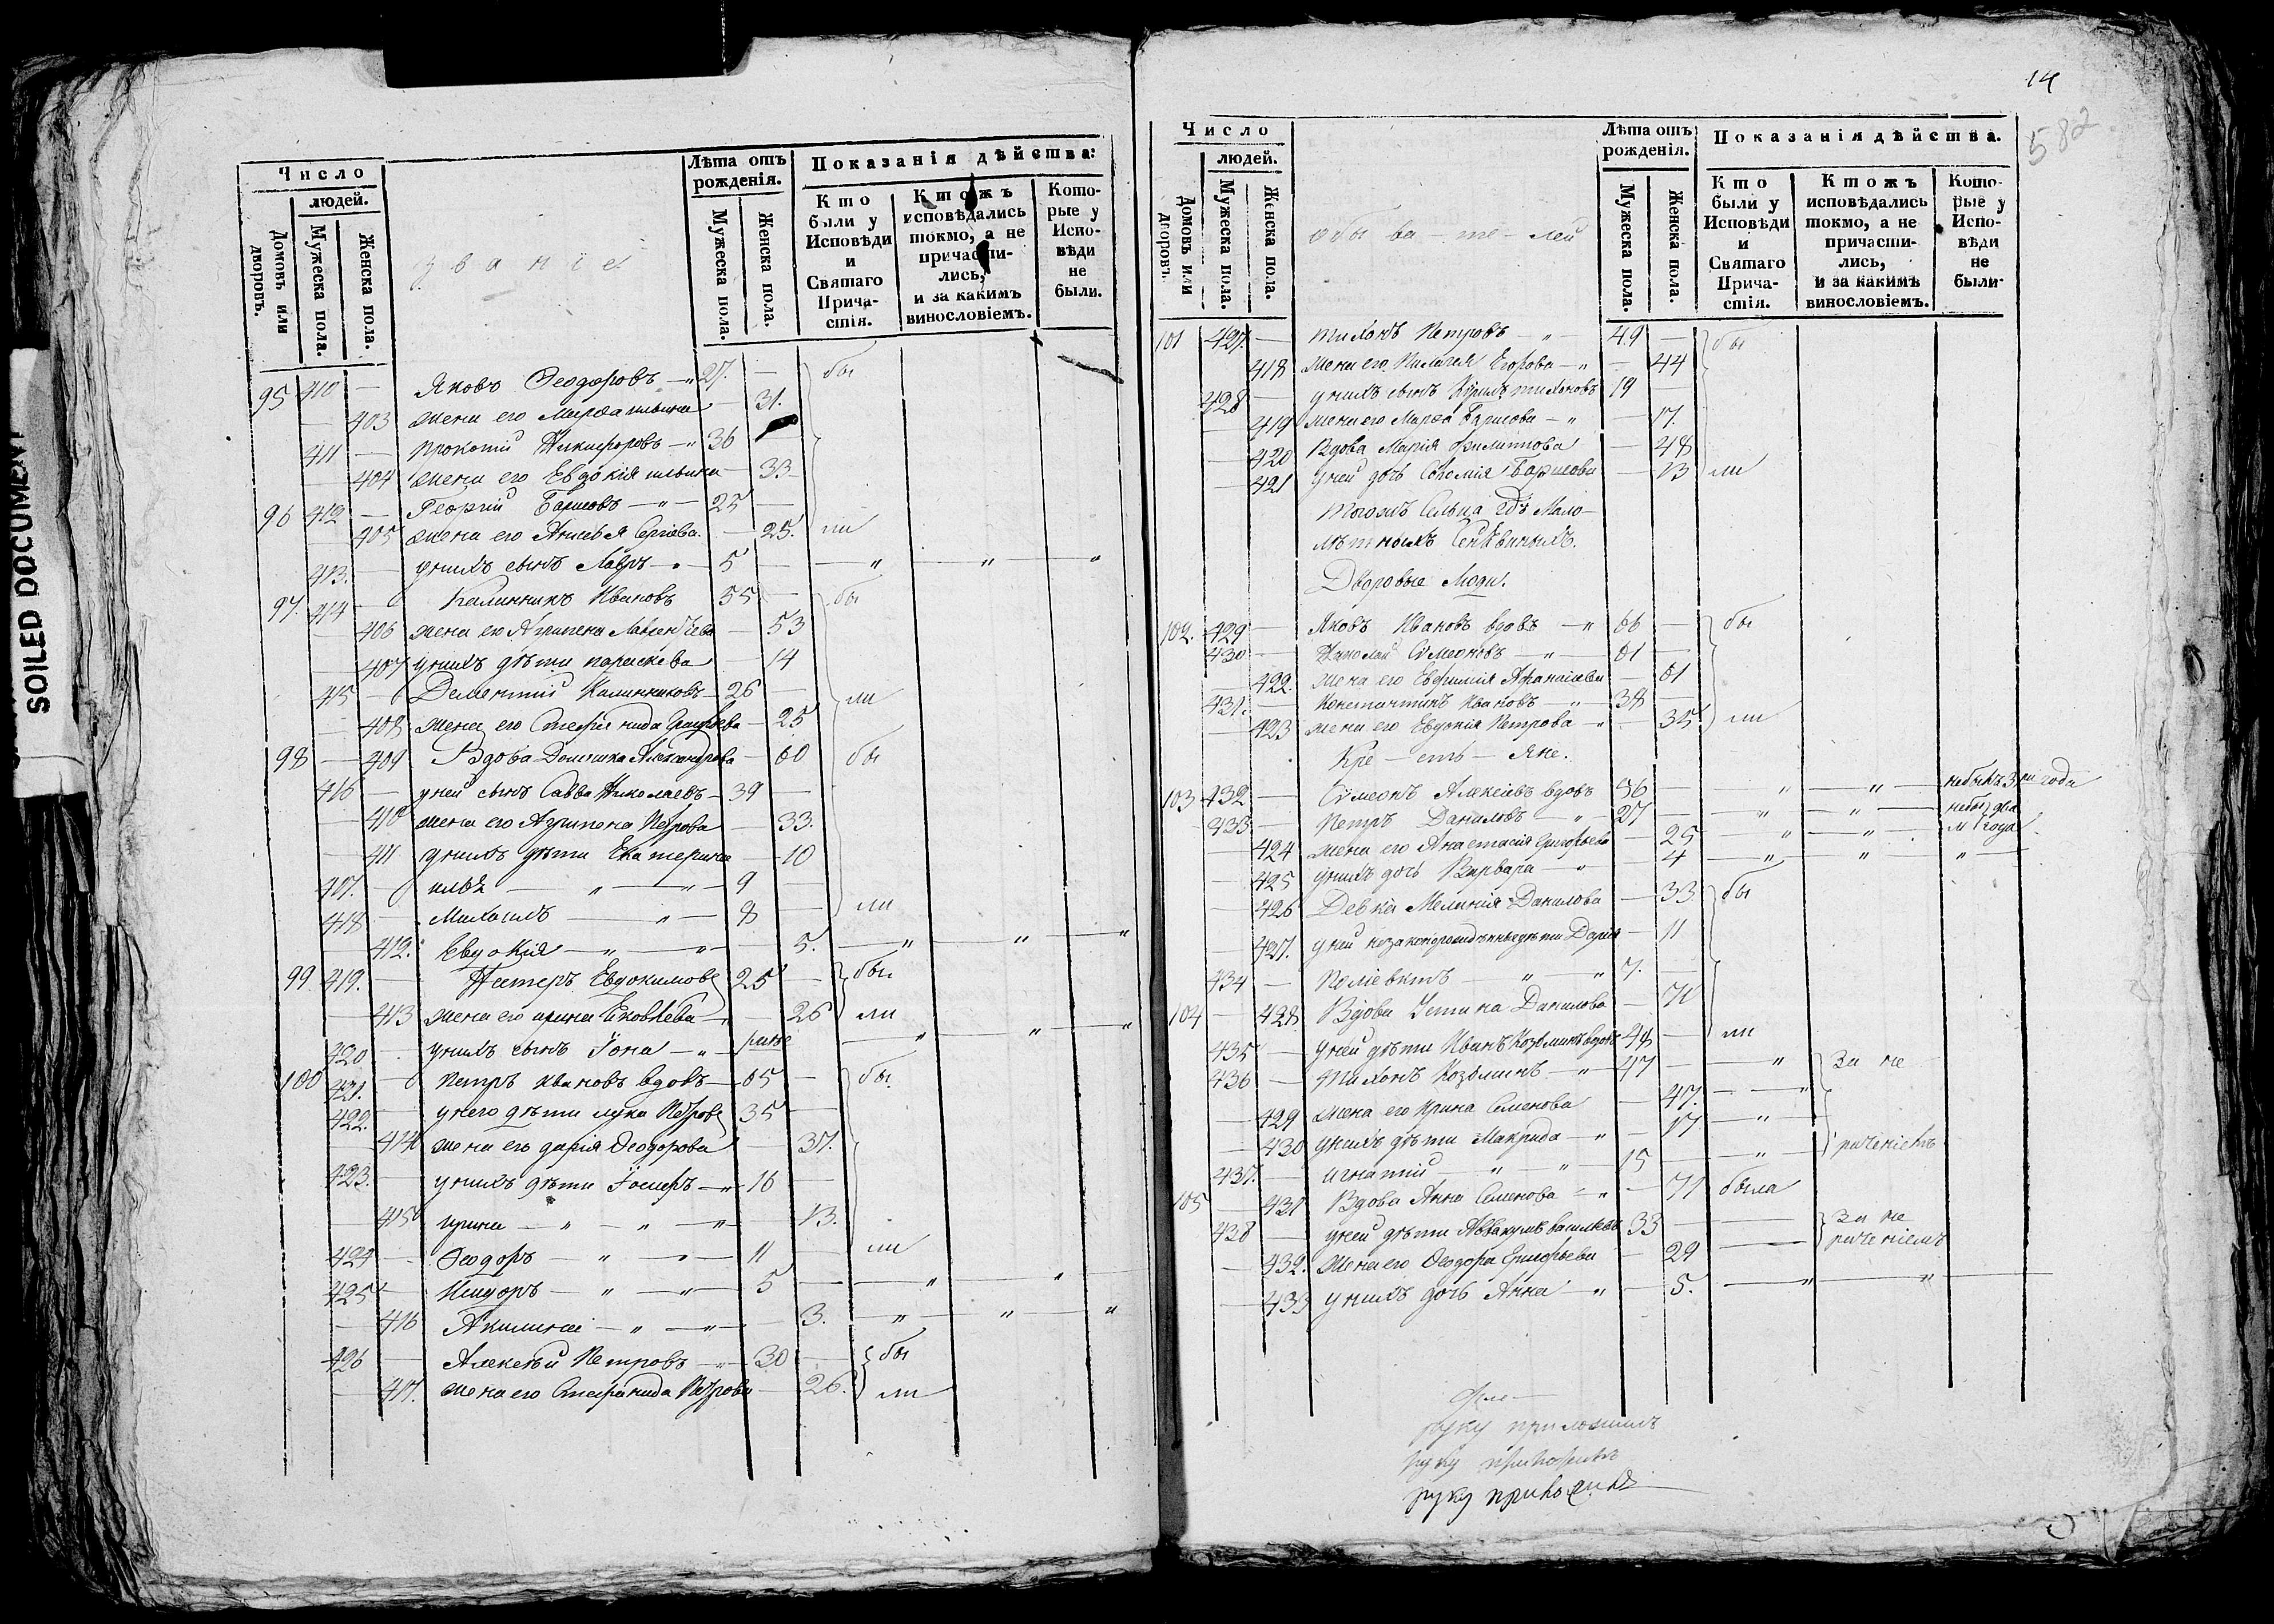 SOILED DOCUMENT
Число
людей.
Домовъ или дворовъ.
Мужеска пола.
Женска пола.
званіе
Лѣта отъ рожденія.
Мужеска пола.
Женска пола.
Показанія дѣйства:
Кто были у Исповѣди и Святаго Причастія.
Ктожъ исповѣдались токмо, а не причастились, и за какимъ винословіемъ.
Которые у Исповѣди не были.
95 410 — Яковъ Ѳеодоровъ — 27. — бы
— 403 жена его Марѳа ильина — 31.
411 — Прокопій Никифоровъ — 36 —
— 404 жена его Евдокія ильина — 33
96 412 — Георгій Борисовъ — 25 —
— 405 жена его Анисья Сергіева — 25. ли
413. — унихъ сынъ Лавръ — 5 — " — " — "
97. 414 — Калинникъ Ивановъ 55 — бы
— 406 жена его Агрипена Лаврентьева — 53
— 407 унихъ дѣти параскева — 14
415 — Дементій Калинниковъ 26 —
— 408 жена его Стефанида — 25 ли
98 — 409 Вдова Домника Александрова — 60 бы
416 — уней сынъ Савва Николаевъ — 39 —
— 410 жена его Агрипена Петрова — 33.
— 411 унихъ дѣти Екатерина — 10
417. — илья — " — " — 9 —
418 — Михаилъ — " — 8 — ли
412. Евдокія — " — " — 5. — " — " — "
99. 419. — Нестеръ Евдокимовъ 25 — бы
— 413 жена его арина Яковлева — 26 ли
420 — унихъ сынъ Іона — " — " — " — "
100 421. — Петръ Ивановъ вдовъ — 65 — бы
422. — унего дѣти лука Петровъ 35 —
— 414 жена его дарія Ѳеодорова — 37.
423. — унихъ дѣти Іосифъ — " 16 —
— 415 ирина — " — " — " — 13.
424 — Ѳеодоръ — " — " — 11 — ли
425 — Исидоръ — " — " — 5 — " — "
— 416 Акилина — " — " — 3. — " — " — "
426 — Алексѣй Петровъ — 30 — бы
— 417. жена его Стефанида Петрова — 26. ли
14
582
Число
людей.
Домовъ или дворовъ.
Мужеска пола.
Женска пола.
обы ва — те — лей
Лѣта отъ рожденія.
Мужеска пола.
Женска пола.
Показанія дѣйства.
Кто были у Исповѣди и Святаго Причастія.
Ктожъ исповѣдались токмо, а не причастились, и за какимъ винословіемъ.
Которые у Исповѣди не были.
101 427. — Тихонъ Петровъ — " — 49 — бы
418 жена его Пилагея Егорова — " — 44
428 — унихъ сынъ Тихоновъ 19 —
— 419 жена его Марѳа Борисова — " — 17.
— 420 Вдова Марія Филиппова — 48
— 421 уней дочь Борисова — 13 ли
Тогожъ Сельца Гдъ Мало-
лѣтныхъ
Дворовые Люди.
102. 429 — Яковъ Ивановъ вдовъ — " 66 — бы
430 — Николай Симеоновъ — " — 61 —
— 422. жена его Евфимія Афанасіева — 61
431. — Константинъ Ивановъ — " — 38 —
— 423 жена его Евдокія Петрова — " — 35. ли
Кре — сть — яне.
103 432 — Симеонъ Алексіевъ вдовъ 56 — " — " — небылъ 3 ри года
433 — Петръ Даниловъ — " — 27 — " — " — небы два
— 424 жена его Анастасія Григорьева — 25 " — " — ли года
— 425 унихъ дочь Варвара — " — 4 — " — " — "
— 426 Девка Меланія Данилова — 33 бы
— 427. уней незаконорожденныедѣти Дарія — 11
434 — " " 7. —
104 — 428. Вдова Устина Данилова — 71
435 — уней дѣти Иванъ Козминъ вдовъ 48 — ли
436 — Тихонъ Козьминъ — " — 47 — " За не
— 429 жена его Ирина Семенова — 47. — "
— 430 унихъ дѣти Макрида — " — 17 — "
437. — игнатій — " — " — 15 — " раченіемъ
105 — 431 Вдова Анна Семенова — " — 71 была
438 — уней дѣти Аввакумъ Васильевъ 33 — За не
— 432. жена его Ѳеодора Григорьева — 29 — раченіемъ
— 433 унихъ дочь Анна — " — 5. — " — "
руку приложилъ
руку
руку